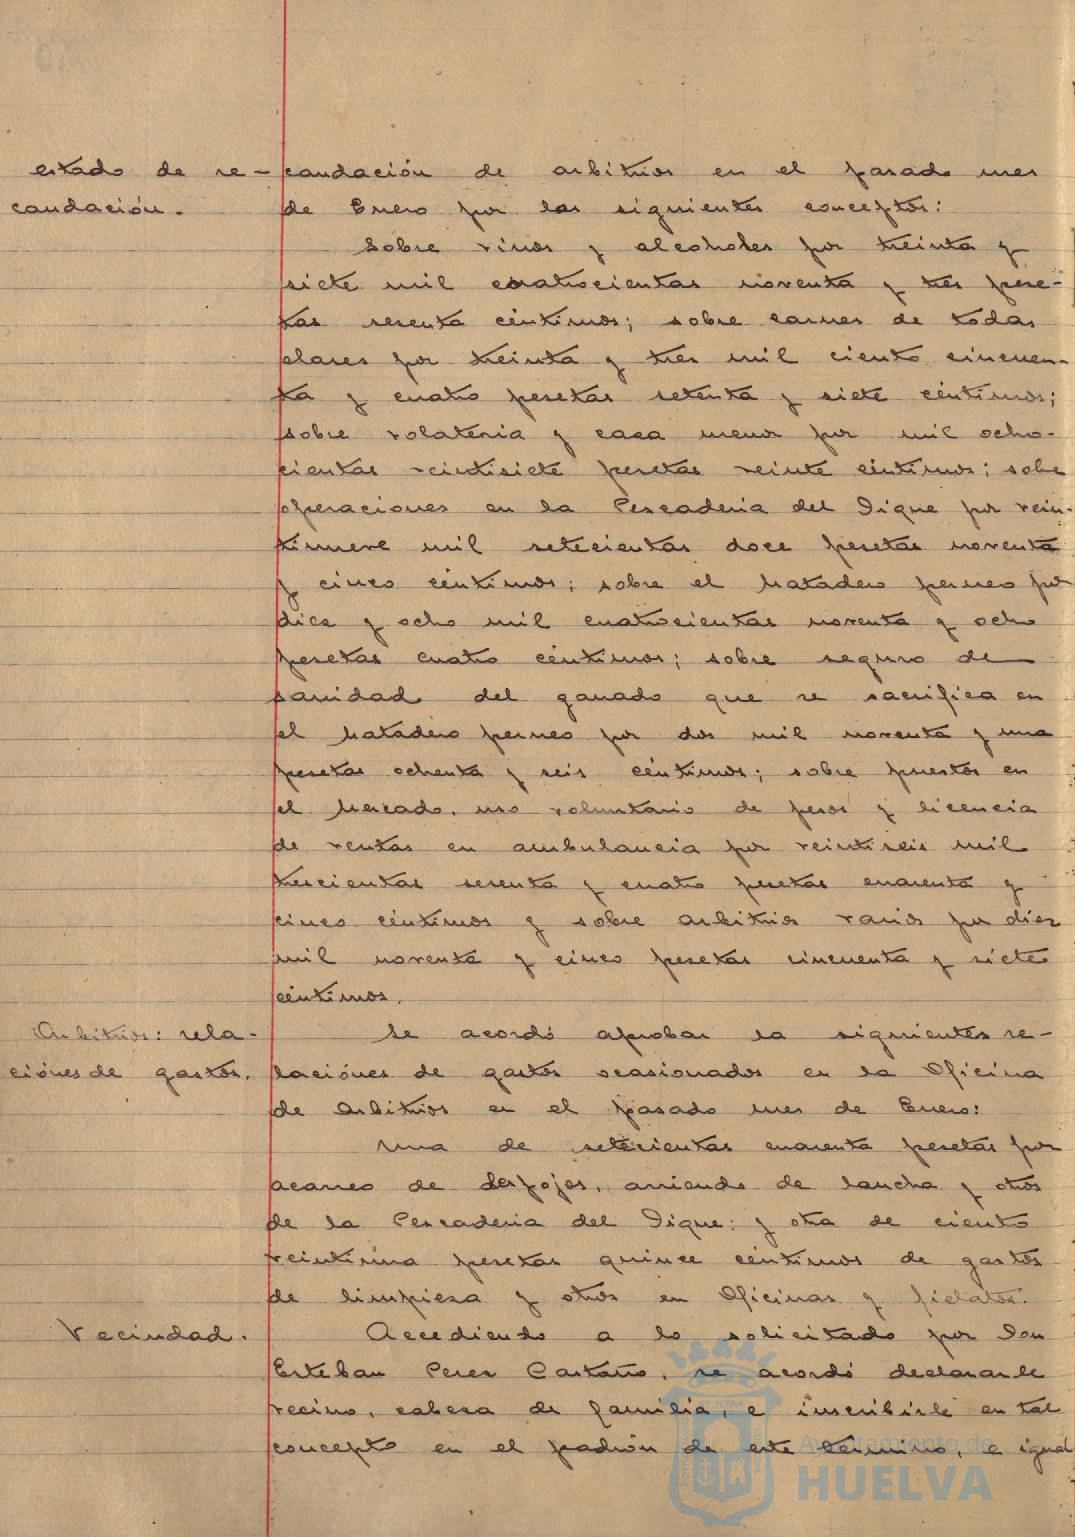 estado de re-
caudación.
caudación de arbitrios en el pasado mes
de Enero por los siguientes conceptos:
Sobre vinos y alcoholes por treinta y
siete mil cuatrocientas noventa y tres pese-
tas sesenta céntimos; sobre carnes de todas
clases por treinta y tres mil ciento cincuen-
ta y cuatro pesetas setenta y siete céntimos;
sobre volateria y casa menor por mil ocho-
cientas veintisiete pesetas veinte céntimos; sobre
operaciones en la Pescaderia del Dique por vein-
tinueve mil setecientas doce pesetas noventa
y cinco céntimos; sobre el Matadero perneo por
diez y ocho mil cuatrocientas noventa y ocho
pesetas cuatro céntimos; sobre seguro de
sanidad del ganado que se sacrifica en
el Matadero perneo por dos mil noventa y una
pesetas ochenta y seis céntimos; sobre puestos en
el Mercado, uso voluntario de pesos y licencia
de ventas en ambulancia por veintiseis mil
trescientas sesenta y cuatro pesetas cuarenta y
cinco céntimos y sobre arbitrios varios por diez
mil noventa y cinco pesetas cincuenta y siete
céntimos.
Arbitrios: rela-
ciónes de gastos.
Se acordó aprobar la siguientes re-
laciónes de gastos ocasionados en la Oficina
de Arbitrios en el pasado mes de Enero:
Una de setecientas cuarenta pesetas por
acarreo de despojos, arriendo de lancha y otros
de la Pescaderia del Dique: y otra de ciento
veintiuna pesetas quince céntimos de gastos
de limpieza y otros en Oficinas y fielatos.
Vecindad.
Accediendo a lo solicitado por Don
Esteban Perez Castaño, se acordó declararle
vecino, cabeza de familia, e inscribirle en tal
concepto en el padrón de este término, e igual
Ayuntamiento de
HUELVA